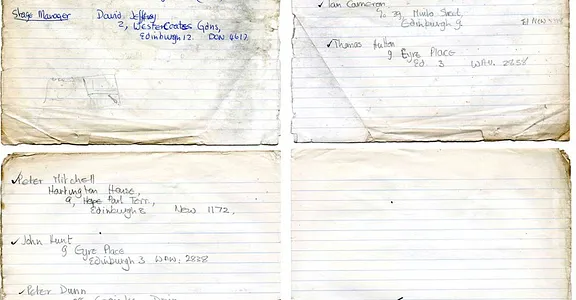 Stage Manager David Jeffrey
2, Wester Coates Gdns,
Edinburgh 12. DON 4617
✓Ian Cameron
39, Street,
Edinburgh 9
✓Thomas Hutton
9 Eyre Place
Ed. 3 WAV. 2838
✓Peter Mitchell
Hartington House,
9, Hope Park Terr.,
Edinburgh 8 NEW 1172,
✓John Hunt
9 Eyre Place
Edinburgh 3 WAV. 2838
✓Peter Dunn